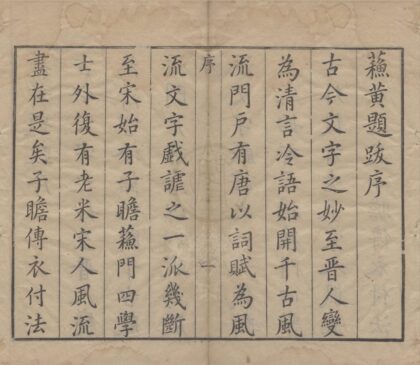 蘓黄題跋序
古今文字之妙至晉人變
為清言冷語始開千古風
流門户有唐以詞賦為風
序
一
流文字戲謔之一派幾斷
至宋始有子瞻蘓門四學
士外復有老米宋人風流
盡在是矣子瞻傳衣付法